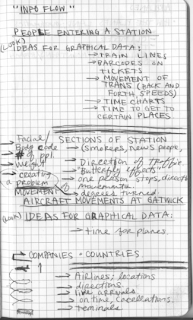 "INFO FLOW"
PEOPLE ENTERING A STATION
(LOOK)
IDEAS FOR GRAPHICAL DATA:
→ TRAIN LINES
→ BARCODES ON
TICKETS
→ MOVEMENT OF
TRANS (BACK AND
FORTH, SPEEDS)
→ TIME CHARTS
→ TIME TO GET TO
CERTAIN PLACES
Facial
Body code
# of ppl
Weight
creating
a problem
MOVEMENT
SECTIONS OF STATION
(smokers, news peeps,
Direction of Traffic
Butterfly effects
one person stops, directs
movements
degrees turned
AIRCRAFT MOVEMENTS AT GATWICK
IDEAS FOR GRAPHICAL DATA:
→ time for planes
COMPANIES + COUNTRIES
→ Airlines; locations
→ directions.
→ live arrivals
→ on time, Cancellations.
→ terminals